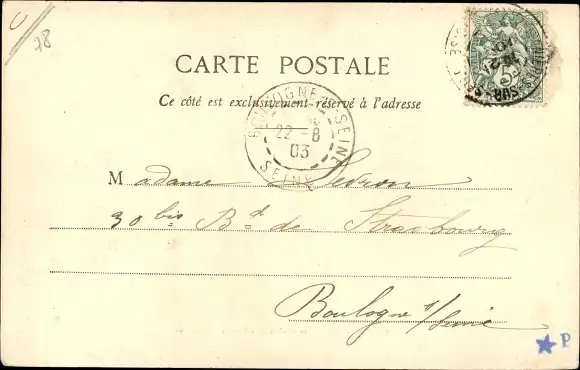 78
CARTE POSTALE
Ce côté est exclusivement réservé à l'adresse
BOULOGNE-S-SEINE
22 -8
03
SEINE
5
Madame Sevron
30 bis Bd de Strasbourg
Boulogne s/Seine
P